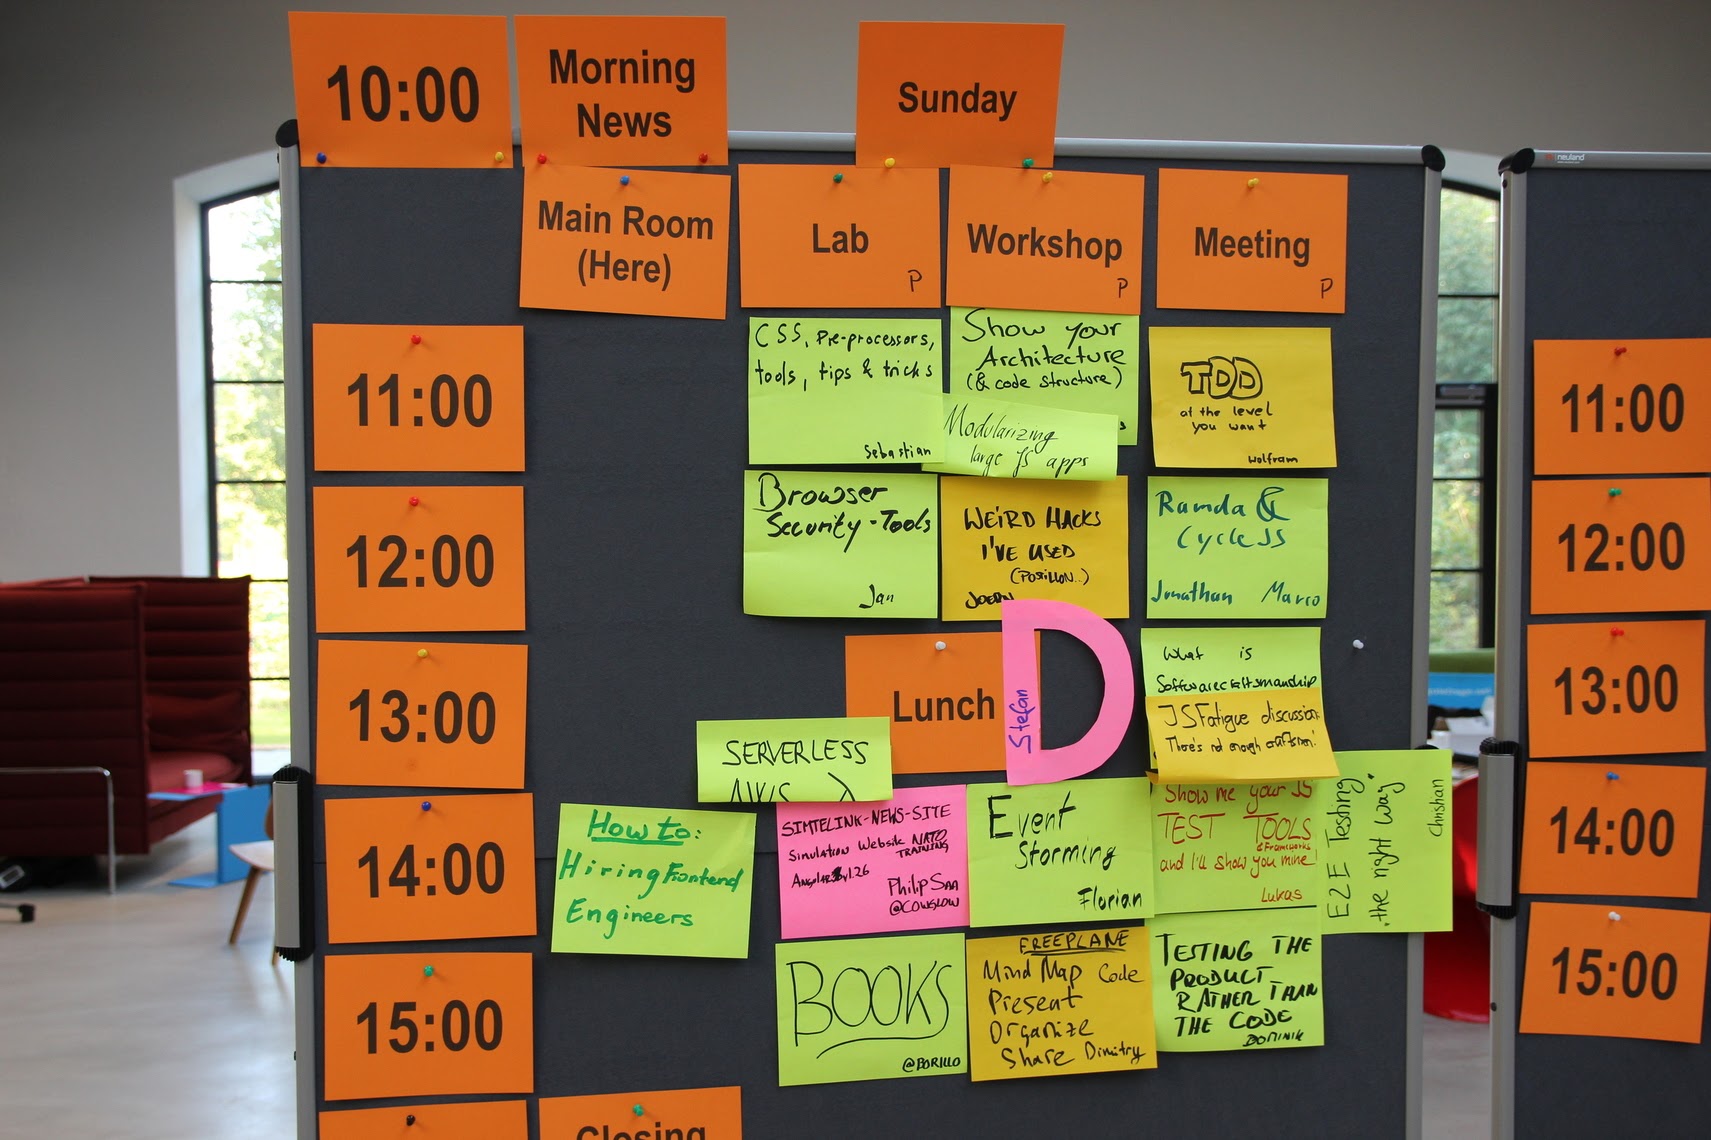 10:00
Morning
News
Sunday
neuland
Main Room
(Here)
Lab
P
Workshop
P
Meeting
P
11:00
CSS, Pre-processors,
tools, tips & tricks
Sebastian
Show your
Architecture
(& code structure)
Modularizing
large JS apps
TDD
at the level
you want
Wolfram
11:00
12:00
Browser
Security-Tools
Jan
WEIRD HACKS
I'VE USED
Ramda &
CycleJS
Jonathan Marco
12:00
13:00
Lunch
Stefan
D
What is
JSFatigue discussion
There's not enough
13:00
SERVERLESS
AWS
14:00
How to:
Hiring Frontend
Engineers
SIMTELINK-NEWS-SITE
Simulation Website NATO
TRAINING
PHILIP SAA
@COWGLOW
Event
Storming
Florian
Show me your JS
TEST TOOLS
& Frameworks
and I'll show you mine!
Lukas
E2E Testing
"the right way"
Christian
14:00
15:00
BOOKS
@BORILLO
FREEPLANE
Mind Map Code
Present
Organize
Share Dimitry
TESTING THE
PRODUCT
RATHER THAN
THE CODE
DOMINIK
15:00
Closing